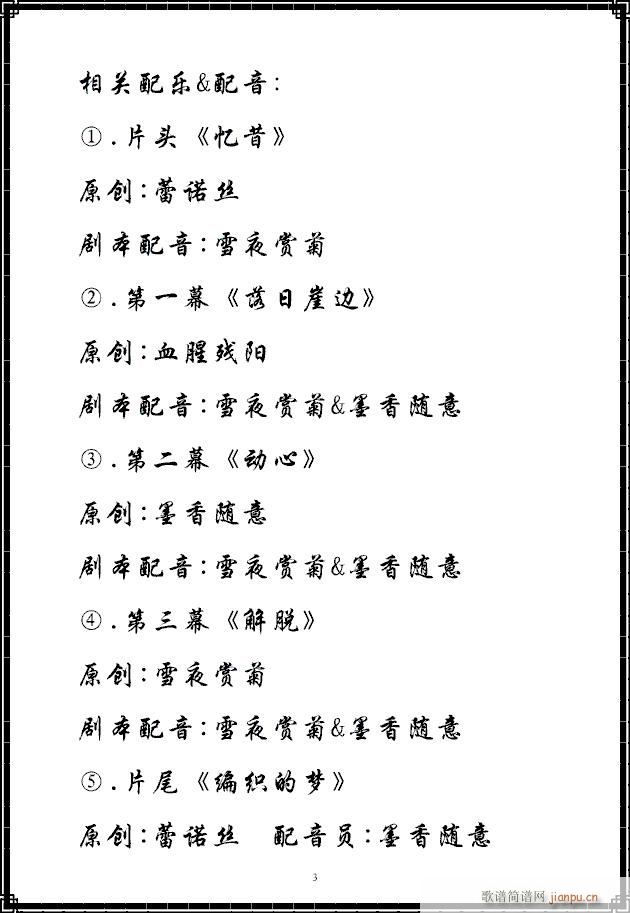 相关配乐&配音:
①.片头《忆昔》
原创:蕾诺丝
剧本配音:雪夜赏菊
②.第一幕《落日崖边》
原创:血腥残阳
剧本配音:雪夜赏菊&墨香随意
③.第二幕《动心》
原创:墨香随意
剧本配音:雪夜赏菊&墨香随意
④.第三幕《解脱》
原创:雪夜赏菊
剧本配音:雪夜赏菊&墨香随意
⑤.片尾《编织的梦》
原创:蕾诺丝 配音员:墨香随意
3
歌谱简谱网 jianpu.cn